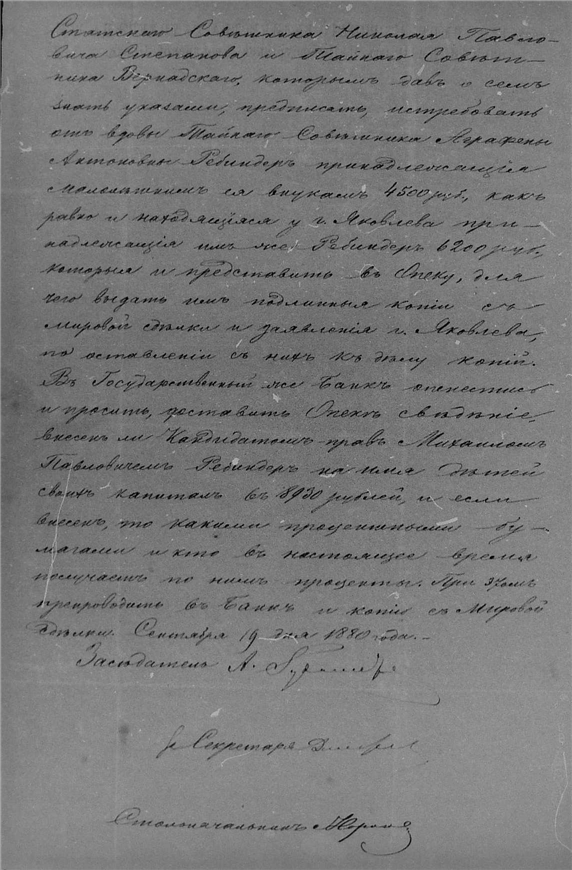 Статскаго Совѣтника Николая Павло-
вича Степанова и Тайнаго Совѣт-
ника Вернадскаго, которымъ давъ о семъ
знать указами, предписать, истребовать
отъ вдовы Тайнаго Совѣтника Аграфены
Антоновны Ребиндеръ принадлежащія
малолѣтнимъ ея внукамъ 4500 руб., какъ
равно и находящіяся у г. Яковлева при-
надлежащія имъ же Ребиндеръ 6200 руб.,
которыя и представить въ Опеку, для
чего выдать имъ подлинныя копіи съ
мировой сдѣлки и заявленія г. Яковлева,
по оставленіи съ нихъ къ дѣлу копій.
Въ Государственный же Банкъ отнестись
и просить, доставить Опекѣ свѣдѣніе,
внесенъ ли Кандидатомъ правъ Михаиломъ
Павловичемъ Ребиндеръ на имя дѣтей
своихъ капиталъ въ 18930 рублей, и если
внесенъ, то какими процентными бу-
магами и кто въ настоящее время
получаетъ по нимъ проценты. При этомъ
препроводить въ Банкъ и копіи съ Мировой
сдѣлки. Сентября 19 дня 1880 года.-
Засѣдатель А.
Секретарь
Столоначальникъ